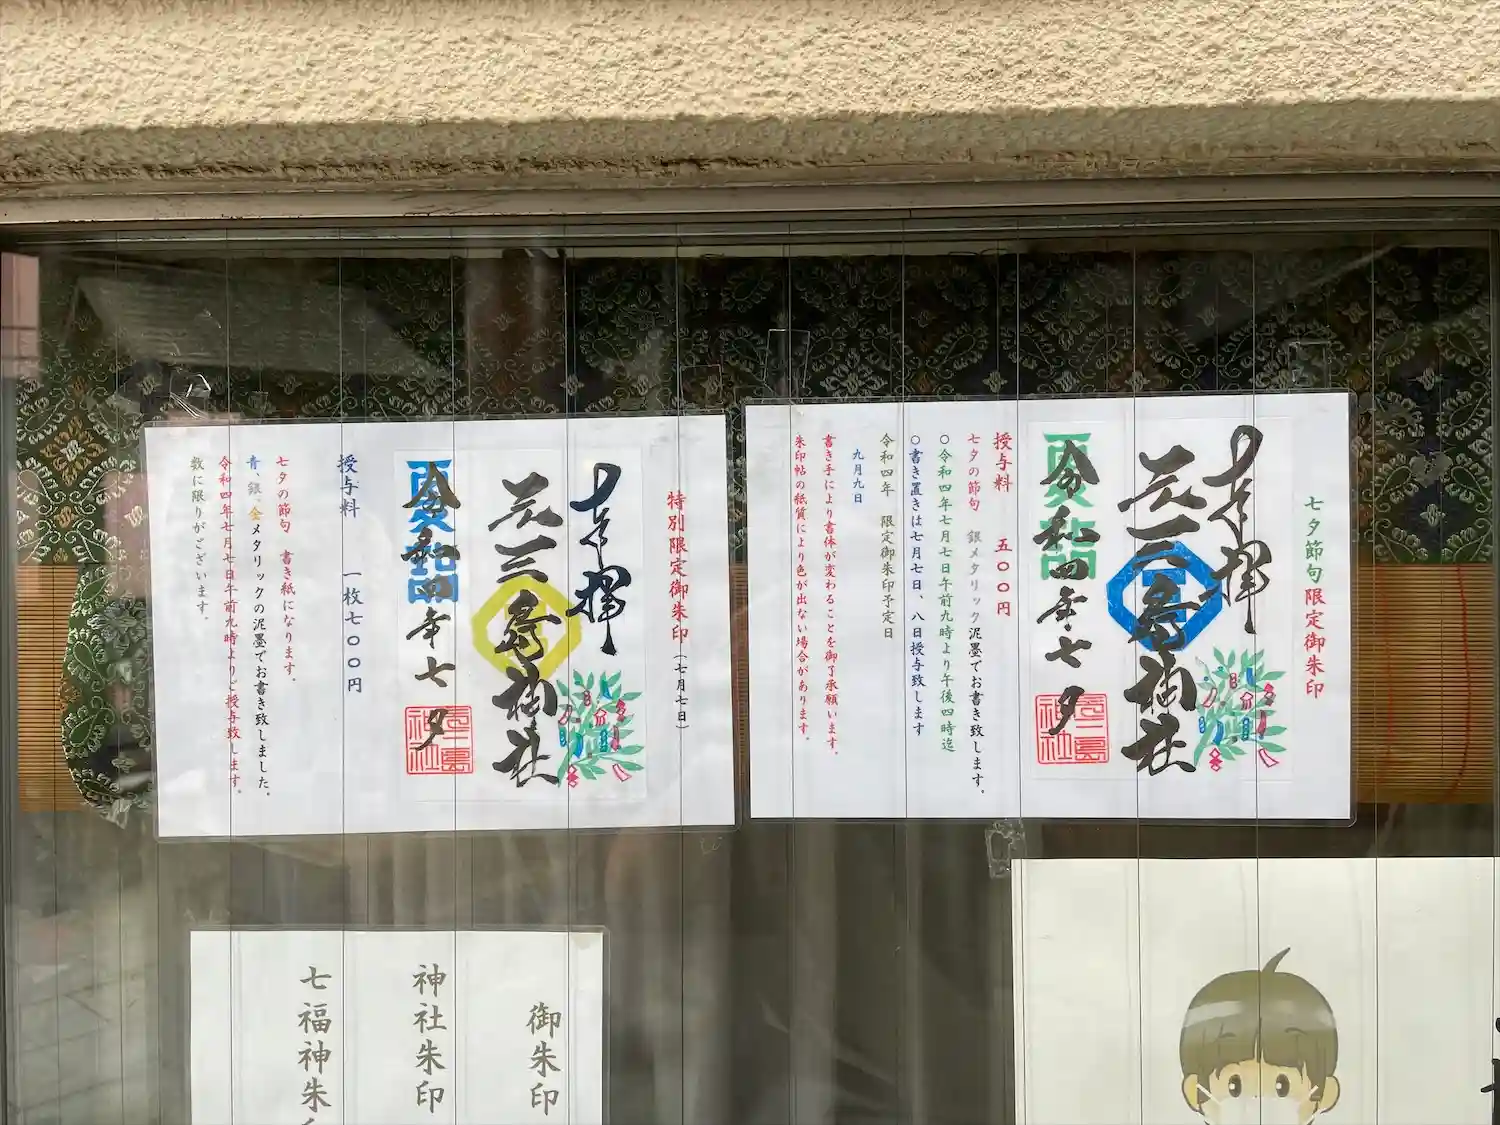 七夕節句限定御朱印
奉拝
元三島神社
令和四年七夕
夏詣
元三島神社
授与料　五００円
七夕の節句　銀メタリック泥墨でお書き致します。
○令和四年七月七日午前九時より午後四時迄
○書き置きは七月七日、八日授与致します
令和四年　限定御朱印予定日
九月九日
書き手により書体が変わることを御了承願います。
朱印帖の紙質により色が出ない場合があります。
特別限定御朱印（七月七日）
奉拝
元三島神社
令和四年七夕
夏詣
元三島神社
授与料　一枚七００円
七夕の節句　書き紙になります。
青、銀、金メタリックの泥墨でお書き致しました。
令和四年七月七日午前九時よりご授与致します。
数に限りがございます。
御朱印
神社朱印
七福神朱